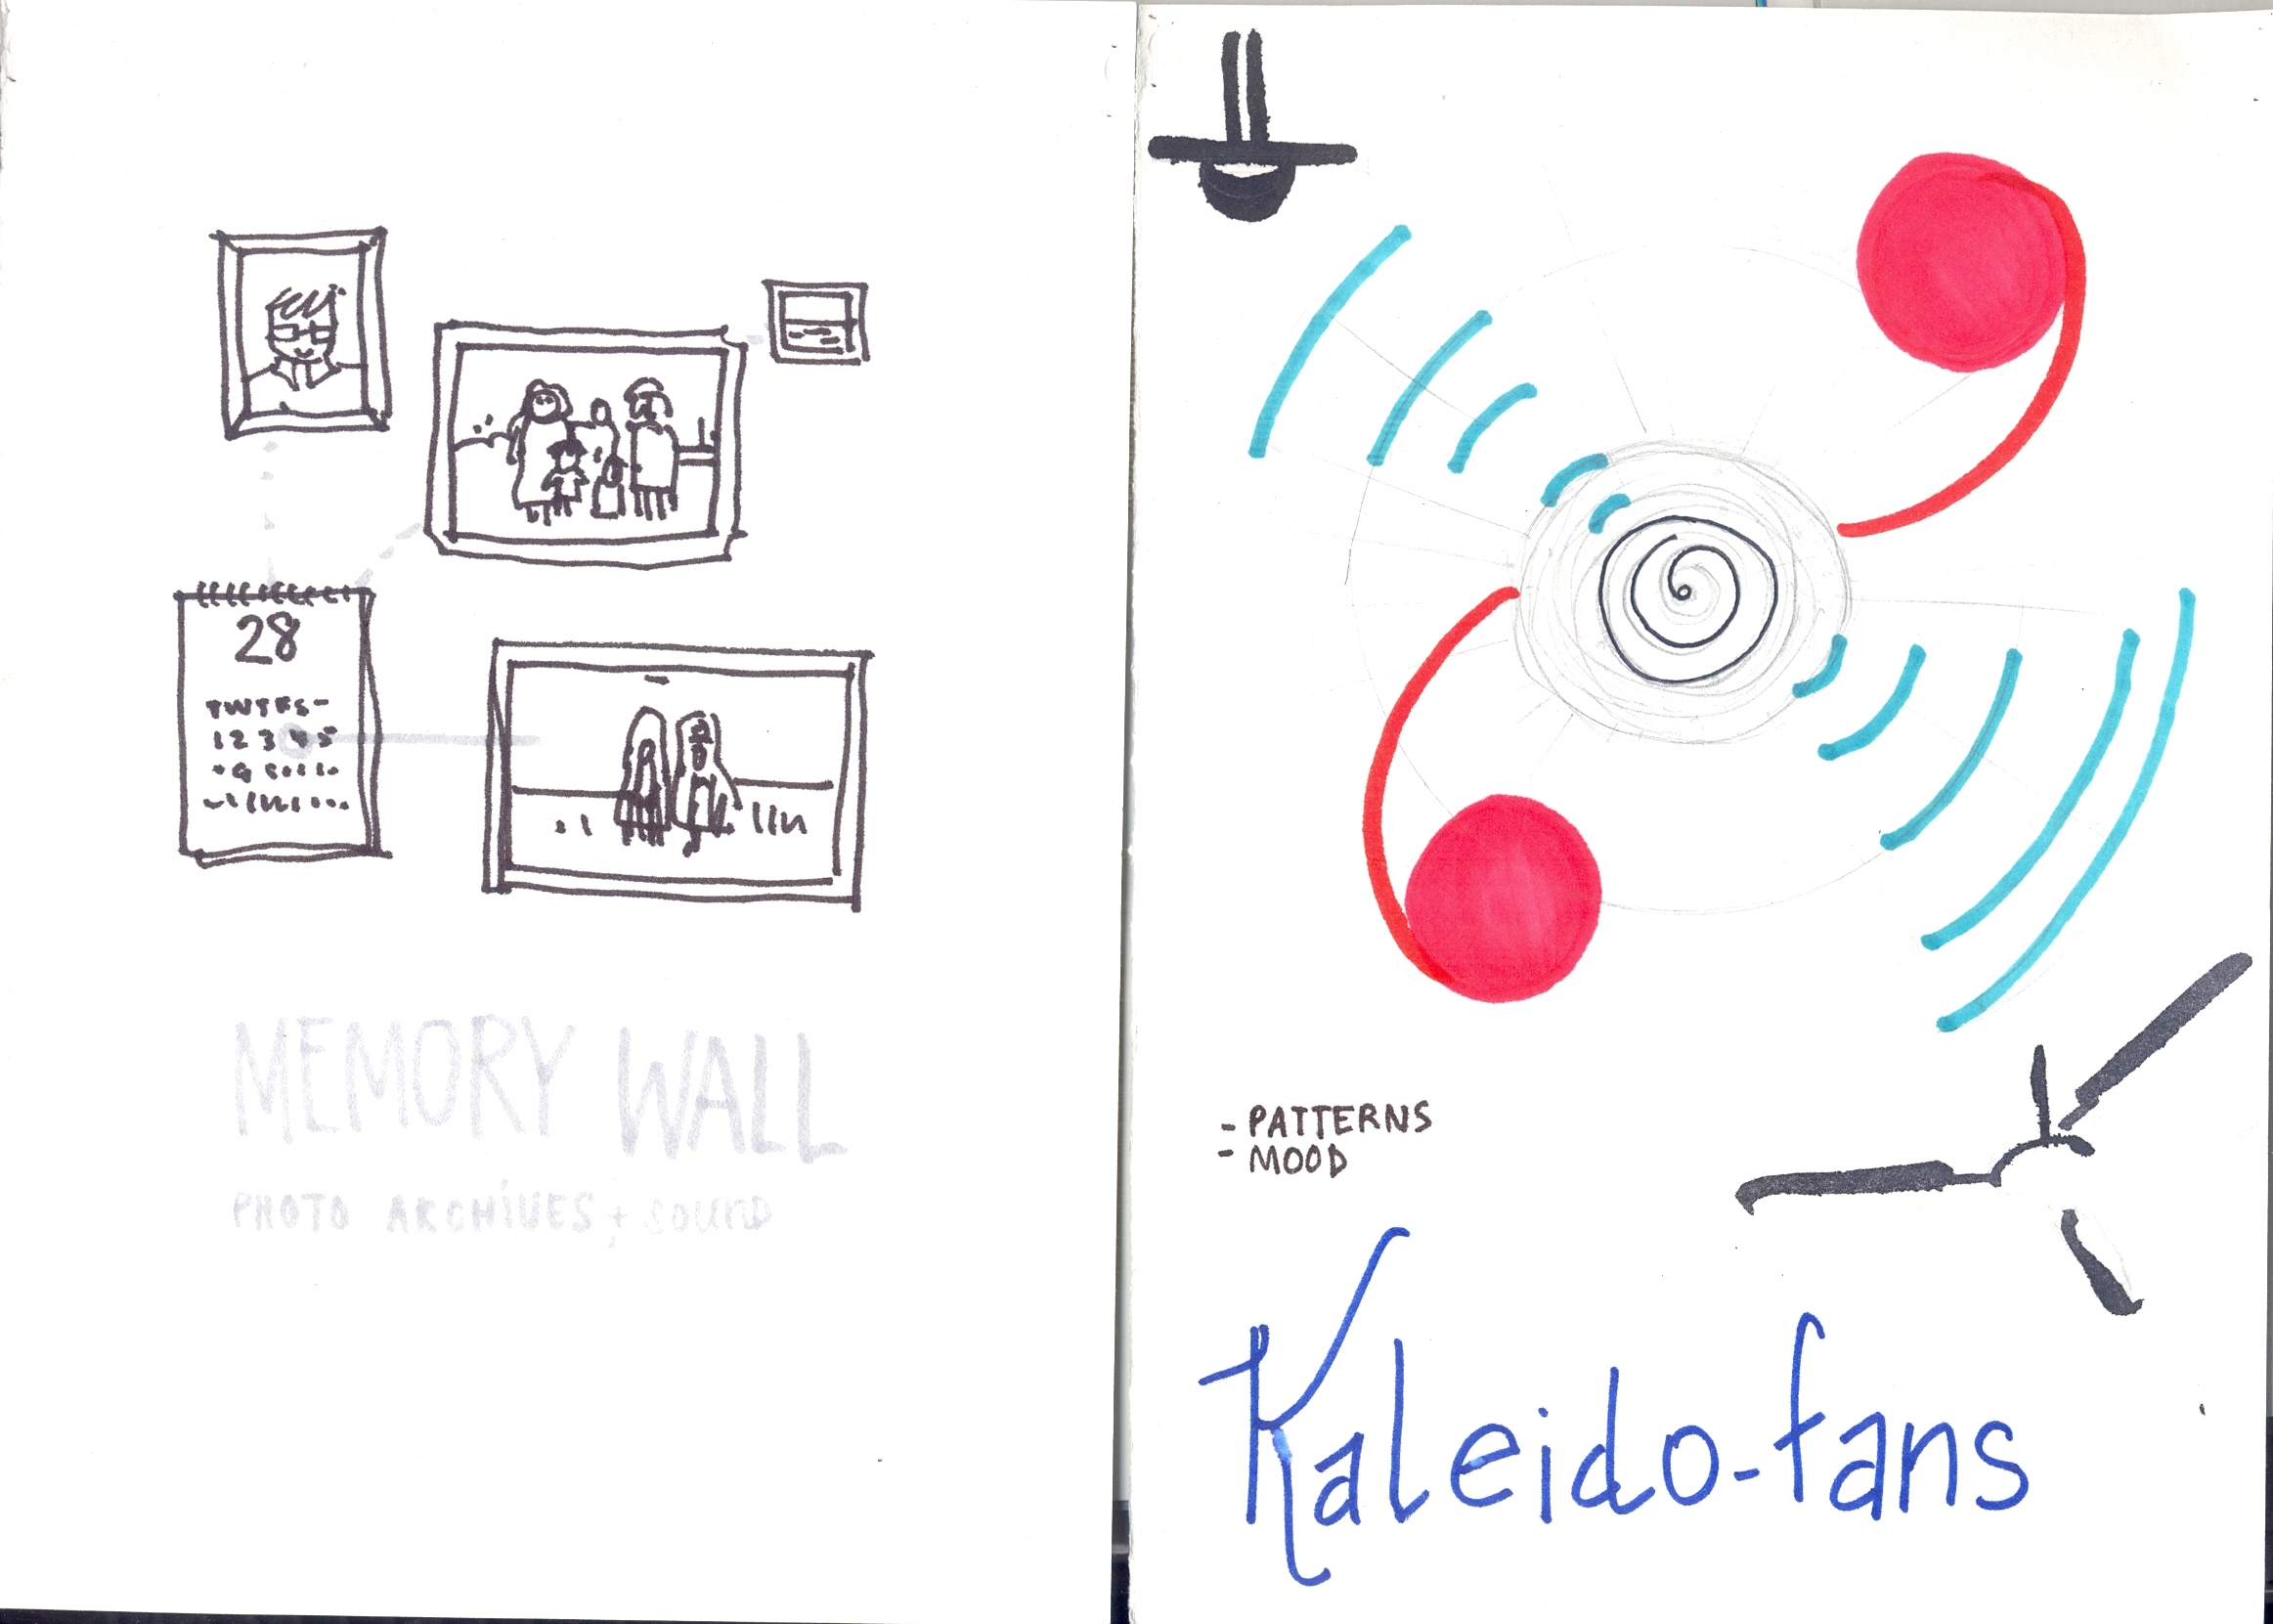 28
TWTFS-
1 2 3 4 5
MEMORY WALL
PHOTO ARCHIVES + SOUND
- PATTERNS
- MOOD
Kaleido-fans